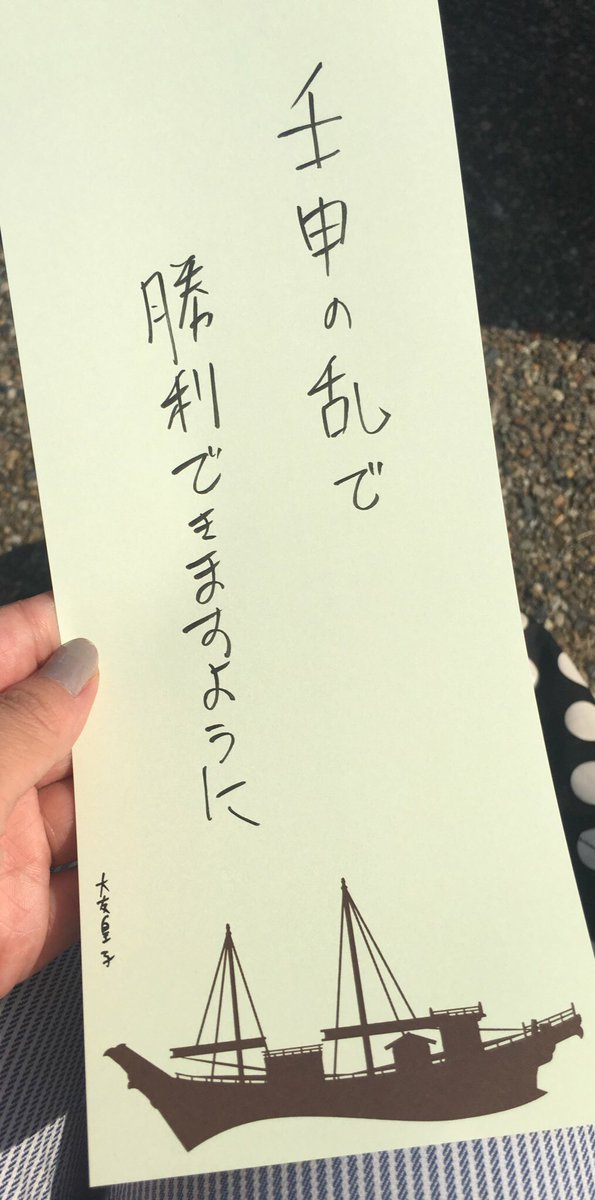 壬申の乱で
勝利できますように
大友皇子